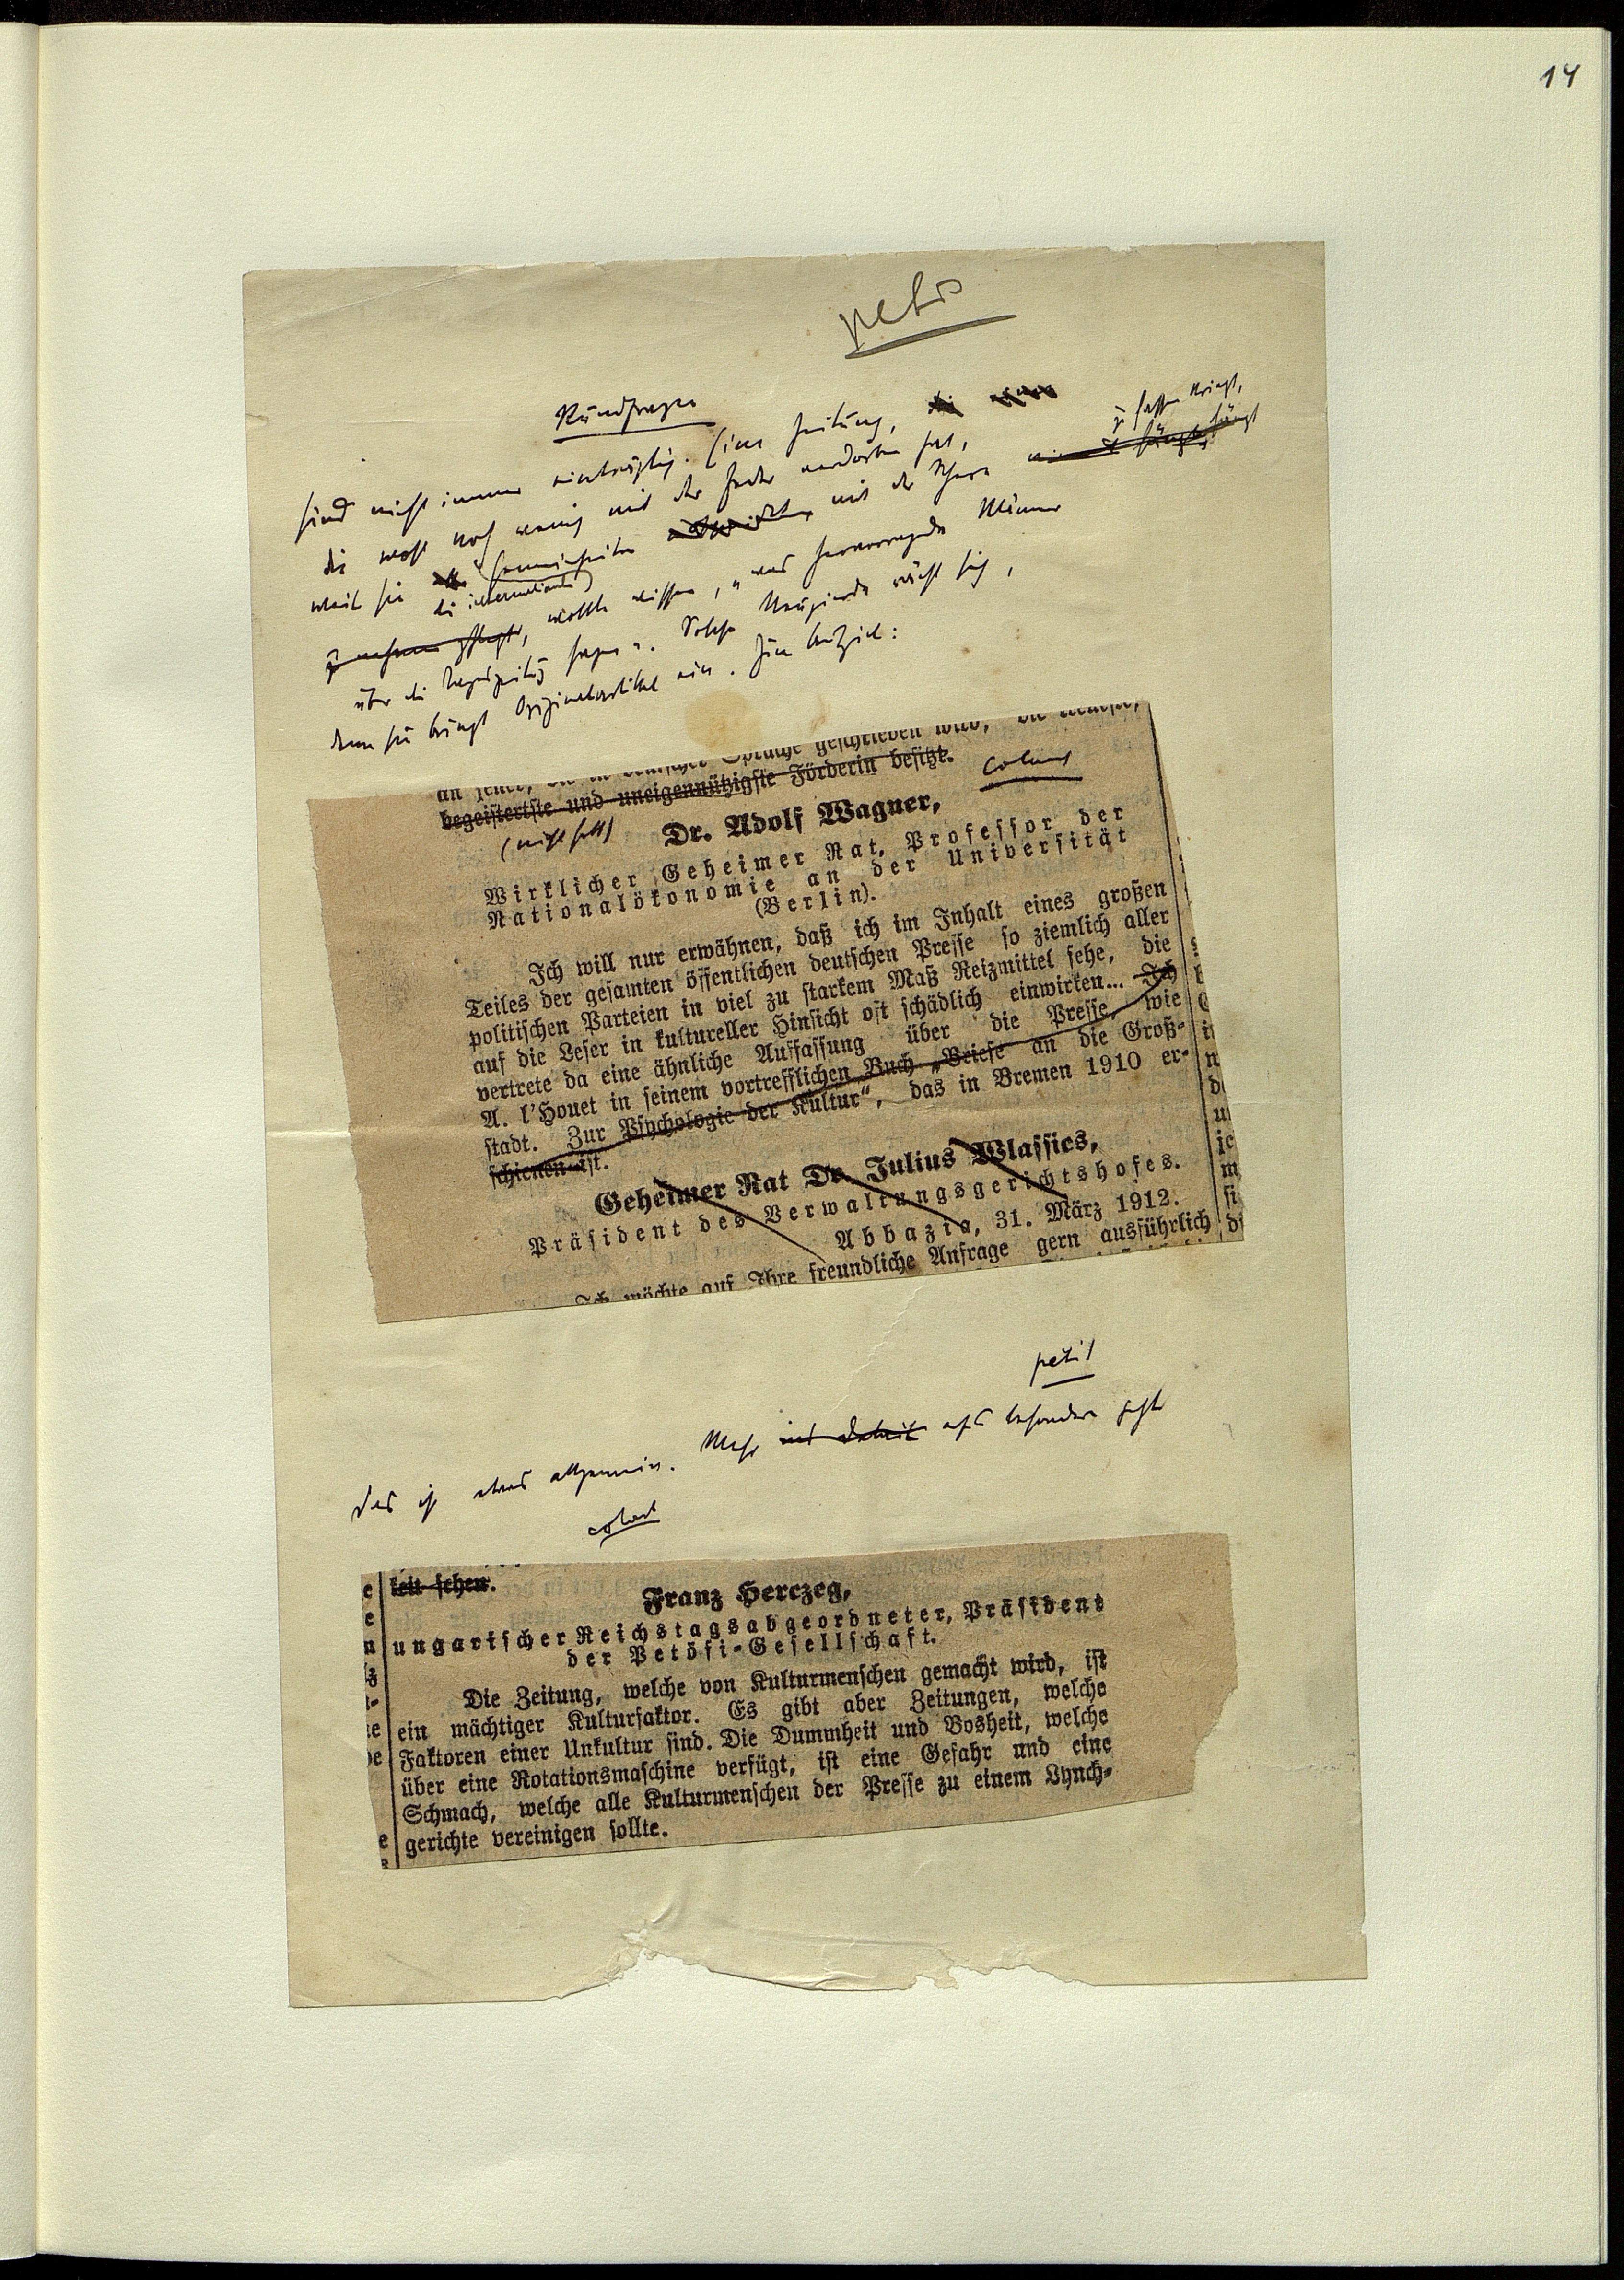 14
Rundfragen
sind nicht immer einträglich. Eine Zeitung, die
die wohl noch wenig mit der Feder verdorben hat,
zu fassen kriegt,
weil sie die Gemeinheiten mit der Schere
die internationalen
wollte wissen, „was hervorragende Männer
über die Tageszeitung sagen“. Solche Neugierde rächt sich,
denn sie bringt Originalartikel ein. Zum Beispiel:
an jener, die in deutscher Sprache geschrieben wird, die treueste,
begeistertste und uneigennützigste Förderin besitzt.
colonel
(nicht fett)
Dr. Adolf Wagner,
Wirklicher Geheimer Rat, Professor der
Nationalökonomie an der Universität
(Berlin).
Ich will nur erwähnen, daß ich im Inhalt eines großen
Teiles der gesamten öffentlichen deutschen Presse so ziemlich aller
politischen Parteien in viel zu starkem Maß Reizmittel sehe, die
auf die Leser in kultureller Hinsicht oft schädlich einwirken... Ich
vertrete da eine ähnliche Auffassung über die Presse, wie
A. l'Houet in seinem vortrefflichen Buch „Briefe an die Groß-
stadt. Zur Psychologie der Kultur“, das in Bremen 1910 er-
schienen ist.
Geheimer Rat Dr. Julius Wlassics,
Präsident des Verwaltungsgerichtshofes.
Abbazia, 31. März 1912.
Ich möchte auf Ihre freundliche Anfrage gern ausführlich
petit
Das ist etwas allgemein. Mehr ins Detail
keit sehen.
Franz Herczeg,
ungarischer Reichstagsabgeordneter, Präsident
der Petöfi-Gesellschaft.
Die Zeitung, welche von Kulturmenschen gemacht wird, ist
ein mächtiger Kulturfaktor. Es gibt aber Zeitungen, welche
Faktoren einer Unkultur sind. Die Dummheit und Bosheit, welche
über eine Rotationsmaschine verfügt, ist eine Gefahr und eine
Schmach, welche alle Kulturmenschen der Presse zu einem Lynch-
gerichte vereinigen sollte.